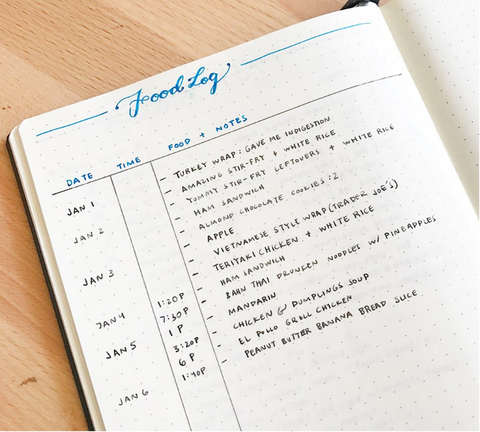 Food Log
DATE TIME FOOD + NOTES
JAN 1 - TURKEY WRAP: GAVE ME INDIGESTION
- AMAZING STIR-FRY + WHITE RICE
JAN 2 - YUMMY STIR-FRY LEFTOVERS + WHITE RICE
- HAM SANDWICH
- ALMOND CHOCOLATE COOKIES: 2
JAN 3 - APPLE
- VIETNAMESE STYLE WRAP (TRADER JOE'S)
- TERIYAKI CHICKEN + WHITE RICE
JAN 4 1:20P - HAM SANDWICH
7:30P - BAHN THAI DRUNKEN NOODLES W/ PINEAPPLES
JAN 5 1P - MANDARIN
3:20P - CHICKEN & DUMPLINGS SOUP
6P - EL POLLO GRILL CHICKEN
JAN 6 1:40P - PEANUT BUTTER BANANA BREAD SLICE